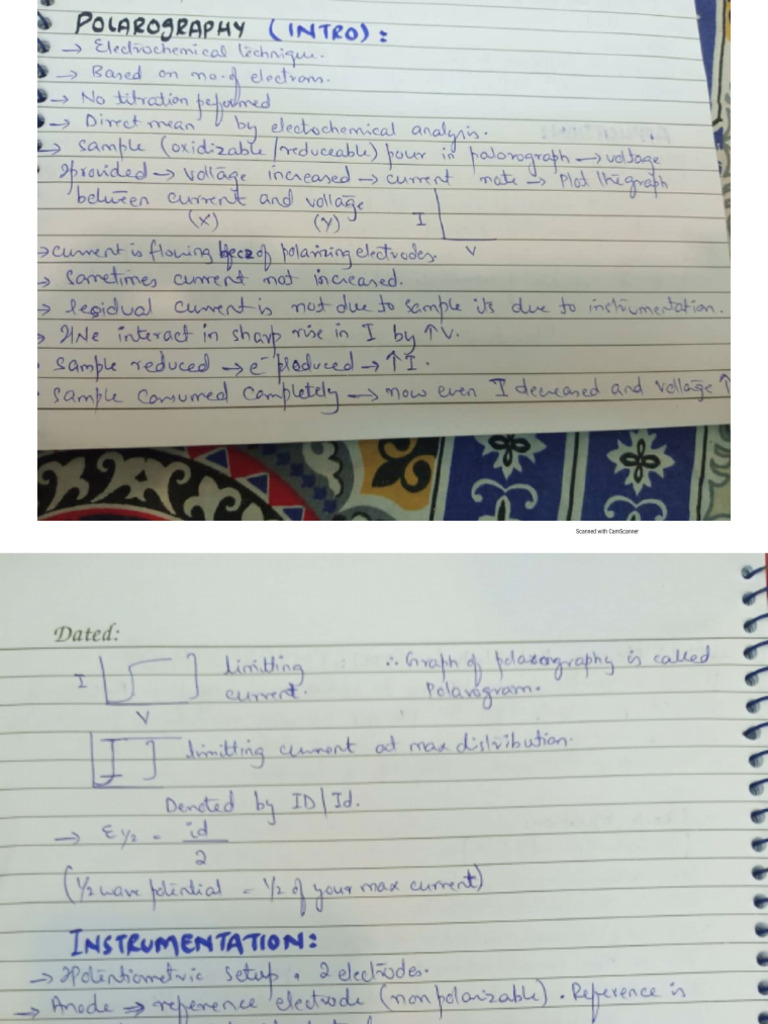 POLAROGRAPHY (INTRO):
→ Electrochemical technique.
→ Based on no. of electrons.
→ No titration peformed
→ Direct mean by electochemical analysis.
→ sample (oxidizable/reduceable) pour in polorograph → voltage
provided → voltage increased → current note → Plot the graph
between current and voltage
(X) (Y) I
V
→ current is flowing becz of polarizing electrodes.
→ Sometimes current not increased.
→ Residual current is not due to sample its due to instrumentation.
interact in sharp rise in I by ↑V.
sample reduced → e⁻ produced → ↑I.
sample consumed completely → now even I decreased and voltage ↑
Scanned with CamScanner
Dated:
I limitting ∴ Graph of polarography is called
current. Polarogram.
V
limitting current at max distribution.
Denoted by ID/Id.
→ E½ = id
2
(½ wave potential = ½ of your max current)
INSTRUMENTATION:
→ Potentiometric setup. 2 electrodes.
→ Anode ⇒ reference electrode (nonpolarizable). Reference is